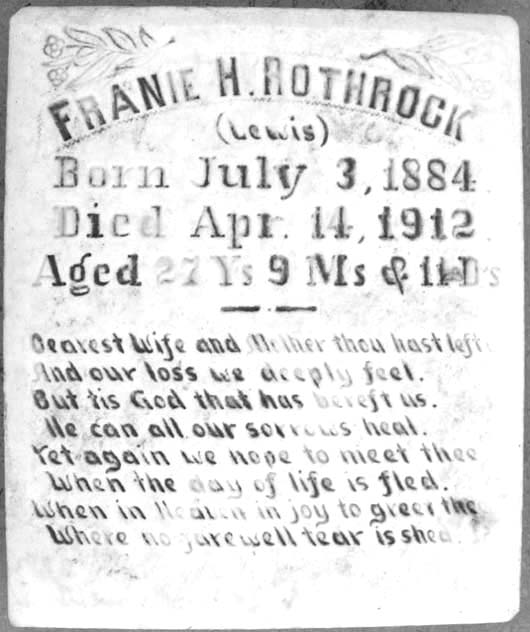 FRANIE H. ROTHROCK
(Lewis)
Born July 3, 1884
Died Apr. 14, 1912
Aged 27 Ys 9 Ms & 11 Ds
Dearest Wife and Mother thou hast left
And our loss we deeply feel.
But tis God that has bereft us.
He can all our sorrows heal.
Yet again we hope to meet thee
When the day of life is fled.
When in Heaven in joy to greet thee
Where no farewell tear is shed.